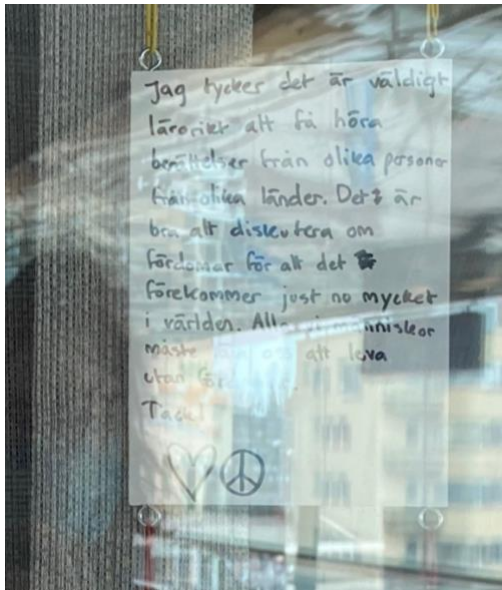 Jag tycker det är väldigt
lärorikt att få höra
berättelser från olika personer
från olika länder. Det är
bra att diskutera om
fördomar för att det
förekommer just no mycket
i världen. Alla vi människor
måste lära oss att leva
utan
Tack!